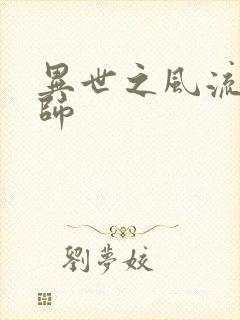 異世之風流
師
劉夢姣